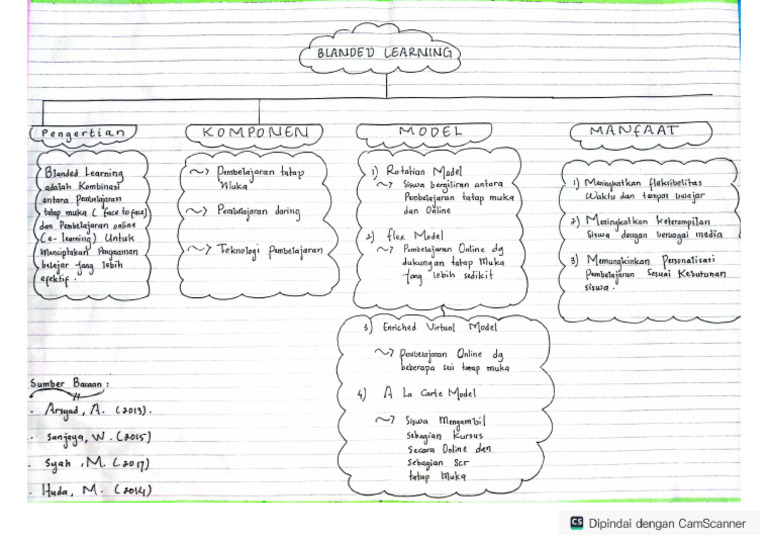 BLANDED LEARNING
Pengertian
Blanded Learning
adalah Kombinasi
antara Pembelajaran
tatap muka ( face to face)
dan Pembelajaran online
(e-learning) Untuk
Menciptakan Pengalaman
belajar yang lebih
efektif.
KOMPONEN
~> Pembelajaran tatap
Muka
~> Pembelajaran daring
~> Teknologi Pembelajaran
MODEL
1) Rotation Model
~> Siswa bergiliran antara
Pembelajaran tatap muka
dan Online
2) flex Model
~> Pembelajaran Online dg
dukungan tatap Muka
yang lebih sedikit
3) Enriched Virtual Model
~> Pembelajaran Online dg
beberapa sesi tatap muka
4) A La Carte Model
~> Siswa Mengambil
Sebagian Kursus
Secara Online dan
Sebagian Scr
tatap Muka
MANFAAT
1) Meningkatkan fleksibelitas
Waktu dan tempat belajar
2) Meningkatkan Keterampilan
Siswa dengan berbagai media
3) Memungkinkan Personalisasi
Pembelajaran Sesuai Kebutuhan
siswa.
Sumber Bacaan :
· Arsyad, A. (2013).
· Sanjaya, W. (2015)
· Syah, M. (2017)
· Huda, M. (2014)
CS Dipindai dengan CamScanner